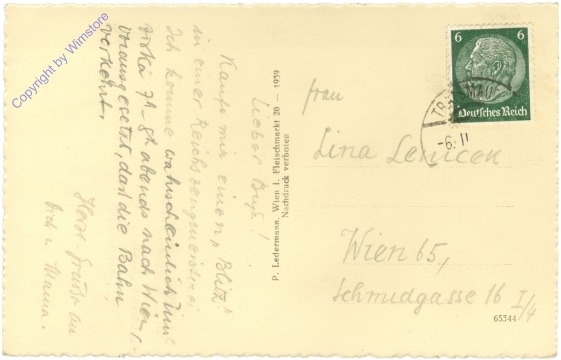 Copyright by Wimstore
Lieber Bub!
Kaufe mir einen „Blitz"
in einer Reichszeugmeisterei
Ich komme wahrscheinlich Zum.
zirka 7h - 8h abends nach Wien,
vorausgesetzt, dass die Bahn
verkehrt.
Herzl. Grüße an
Dich u. Mama.
P. Ledermann, Wien I. Fleischmarkt 20 - 1939
Nachdruck verboten
6 6
Deutsches Reich
-6. 11
Frau
Lina
Wien 65,
Schmudgasse 16 I/4
65344